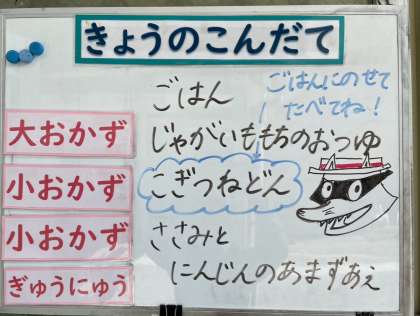 きょうのこんだて
ごはん
ごはんにのせて
たべてね！
大おかず
じゃがいももちのおつゆ
小おかず
こぎつねどん
小おかず
ささみと
にんじんのあまずあえ
ぎゅうにゅう